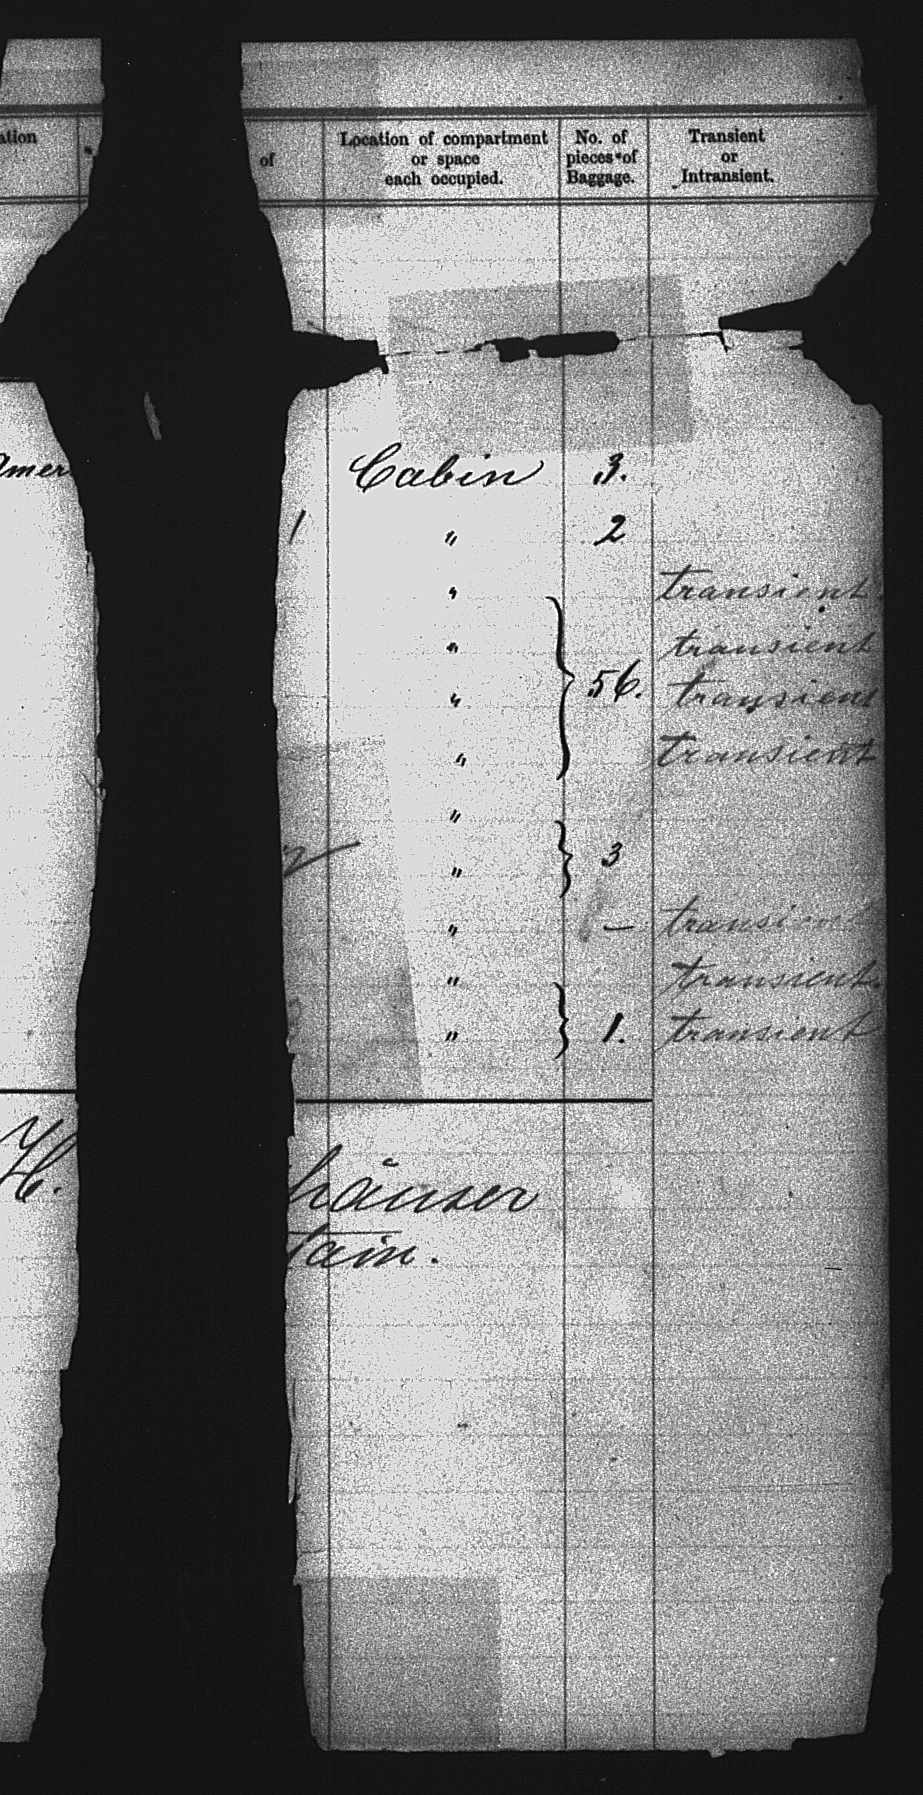 ation
of
Location of compartment
or space
each occupied.
No. of
pieces of
Baggage.
Transient
or
Intransient.
Amer Cabin 3.
1 " 2
" transient.
" transient
" 56. transient
" transient
"
" 3
" — transient
" transient.
" 1. transient
H. häuser
tain.